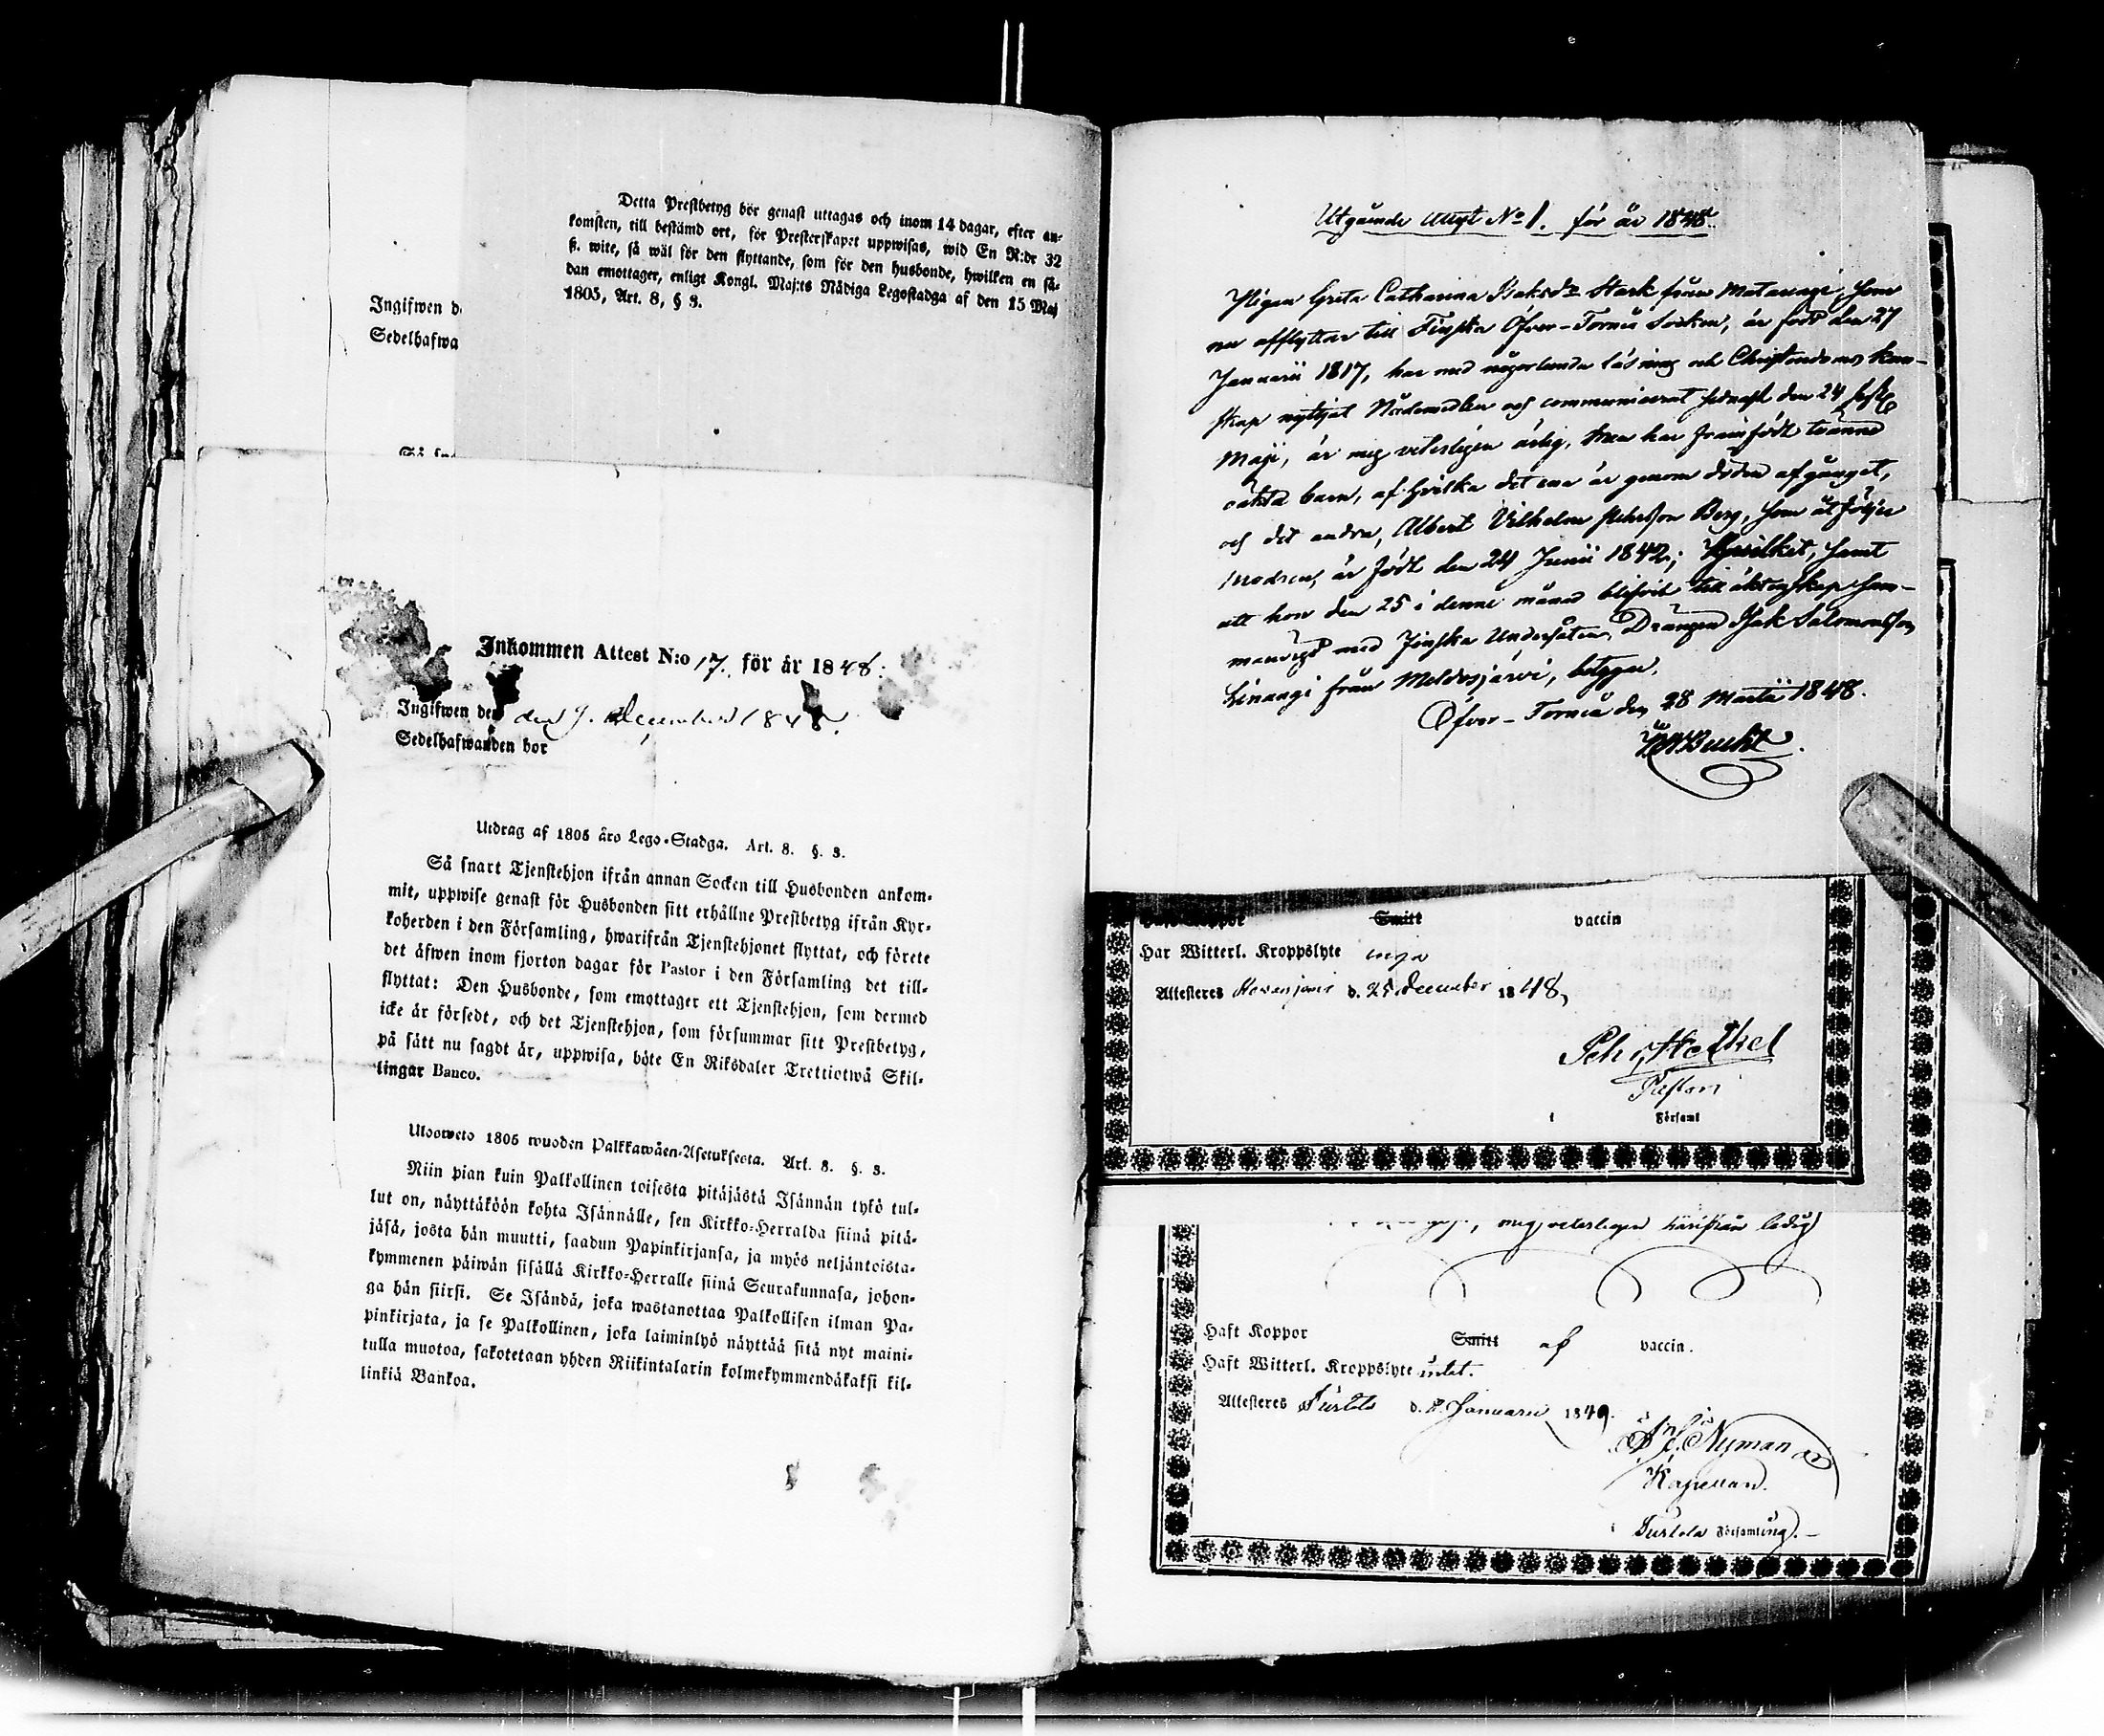 Detta Prestbetyg bör genast uttagas och inom 14 dagar, efter an-
komsten, till bestämd ort, för Presterskapet uppwisas, wid En R:dr 32
ß. wite, så wäl för den flyttande, som för den husbonde, hwilken en så-
dan emottager, enligt Kongl. Maj:ts Nådiga Legostadga af den 15 Maj
1805, Art. 8, § 3.
Ingifwen d
Sedelhafwa
Så sn
Inkommen Attest N:o 17. för år 1848.
Ingifwen den den 9. December 1848.
Sedelhafwanden bor
Utdrag af 1805 åro Lego-Stadga. Art. 8. §. 3.
Så snart Tjenstehjon ifrån annan Socken till Husbonden ankom-
mit, uppwise genast för Husbonden sitt erhållne Prestbetyg ifrån Kyr-
koherden i den Församling, hwarifrån Tjenstehjonet flyttat, och förete
det äfwen inom fjorton dagar för Pastor i den Församling det till-
flyttat: Den Husbonde, som emottager ett Tjenstehjon, som dermed
icke är försedt, och det Tjenstehjon, som försummar sitt Prestbetyg,
på sätt nu sagdt är, uppwisa, böte En Riksdaler Trettiotwå Skil-
lingar Banco.
Ulosweto 1805 wuoden Palkkawäen-Asetuksesta. Art. 8. §. 3.
Niin pian kuin Palkollinen toisesta pitäjästä Isännän tykö tul-
lut on, näyttäköön kohta Isännälle, sen Kirkko-Herralda siinä pitä-
jäsä, josta hän muutti, saadun Papinkirjansa, ja myös neljäntoista-
kymmenen päiwän sisällä Kirkko-Herralle siinä Seurakunnasa, johon-
ga hän siirsi. Se Isändä, joka wastanottaa Palkollisen ilman Pa-
pinkirjata, ja se Palkollinen, joka laiminlyö näyttää sitä nyt maini-
tulla muotoa, sakotetaan yhden Riikintalarin kolmekymmendäkaksi kil-
linkiä Bankoa.
Utgående Attest No 1. för år 1848.
Pigan Greta Catharina Isaksdr Stark från Matarengi, som
nu afflyttar till Finska Öfver-Torneå Socken, är född den 27
Januarii 1817, har med någorlunda läsning och Christendoms kun-
skap nyttjat Nådemedlen och communicerat sednast den 24 sistl.
Maji, är mig veterligen ärlig, men har framfödt tvänne
oäkta barn, af hvilka det ena är genom döden afgånget,
och det andra, Albert Vilhelm Berg, som åtföljer
modren, är födt den 24 Junii 1842; hvilket, samt
att hon den 25 i denne månad blifvit till äktenskap sam-
manvigd med Finska Undersåten, Drängen Isak Salomonsson
Linangi från Meldosjärvi, betygar.
Öfver-Torneå den 28 Martii 1848.
Bucht
Smitt vaccin
Har Witterl. Kroppslyte inga
Attesteres d. 25 December 1848,
Pehr Heikel
Pastor
i Församl
mig veterligen härifrån ledig
Haft Koppor Smitt af vaccin.
Haft Witterl. Kroppslyte intet.
Attesteres Turtola d. 8 Januarii 1849.
Nyman
Kapellan.
i Turtola Församling.